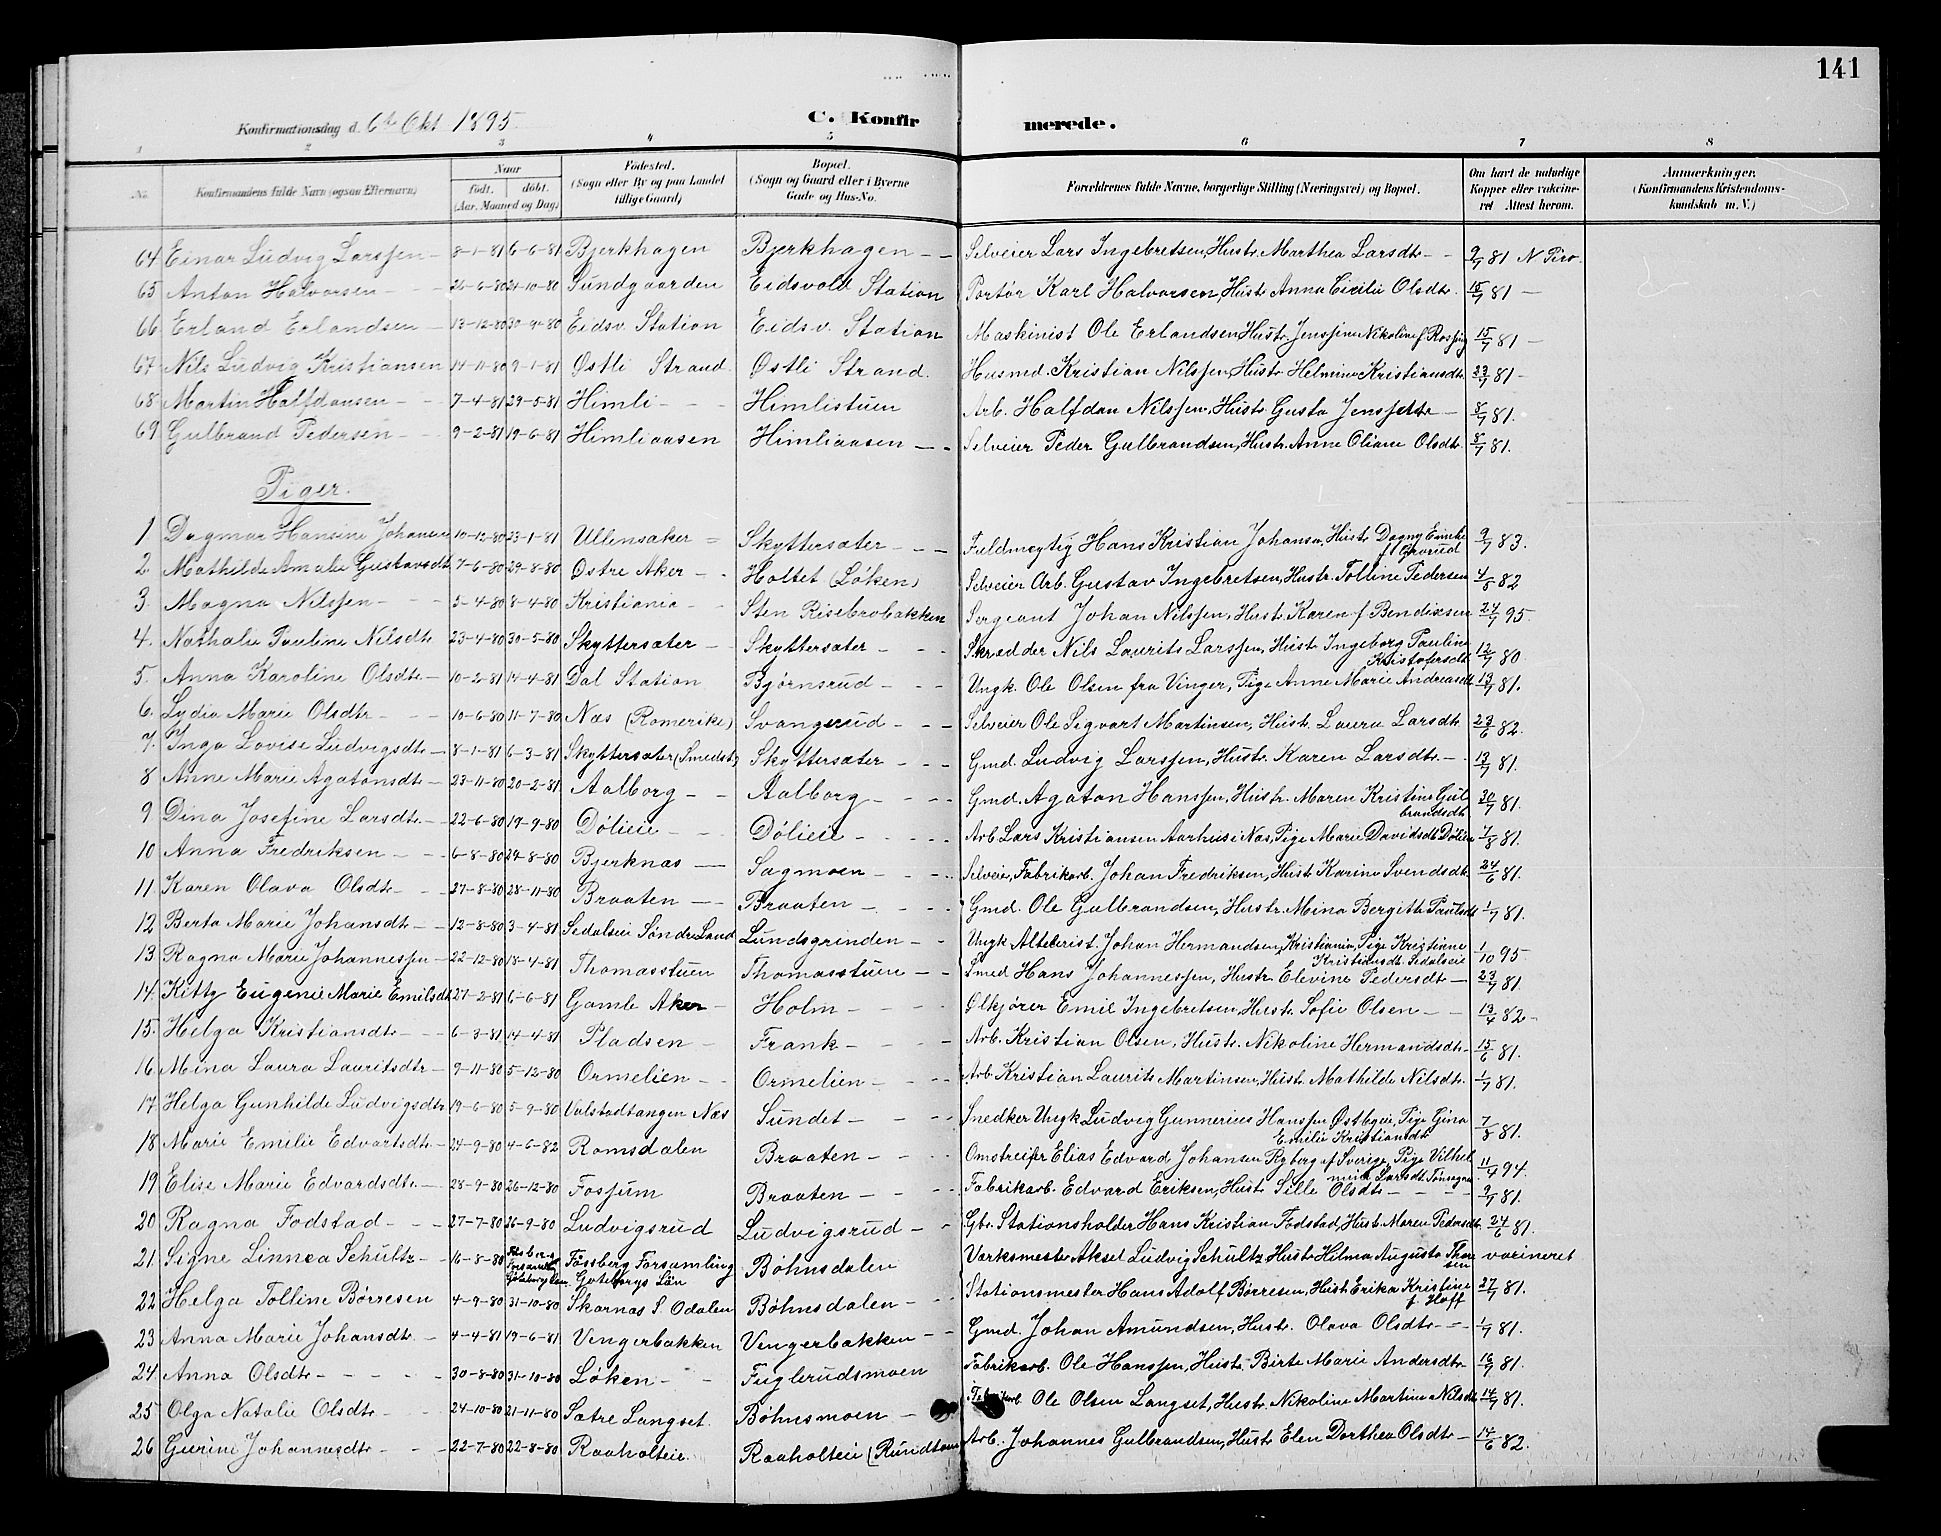 141
Konfirmationsdag d. 6te Okt 1895.
C. Konfirmerede.
1 2 3 4 5 6 7 8
No. Konfirmandens fulde Navn (ogsaa Efternavn) Naar født. døbt. (Aar, Maaned og Dag) Fødested. (Sogn eller By og paa Landet tillige Gaard) Bopæl. (Sogn og Gaard eller i Byerne Gade og Hus-No. Forældrenes fulde Navne, borgerlige Stilling (Næringsvei) og Bopæl. Om havt de naturlige Kopper eller vakcineret Attest herom. Anmærkninger. (Konfirmandens Kristendomskundskab m. V.)
64 Einar Ludvig Larssen 8-1-81 6-6-81 Bjerkhagen Bjerkhagen Selveier Lars Ingebretsen, Hustr. Marthea Larsdtr 9/7 81 N Piro
65 Anton Halvorsen 26-6-80 24-10-80 Sundgaarden Eidsvold Station Portør Karl Halvorsen, Hustr. Anna Cicilie Olsdtr. 15/7 81
66 Erland Erlandsen 13-12-80 Eidsv. Station Eidsv. Station Maskinist Ole Erlandsen Hustr. Jenssine Nikoline f. 15/7 81
67 Nils Ludvig Kristiansen 14-11-80 9-1-81 Østli Strand. Østli Strand. Husmd. Kristian Nilssen, Hustr. Helmine Kristiansdtr 23/7 81
68 Martin Halfdansen 7-4-81 29-5-81 Himli Himlistuen Arb. Halfdan Nilssen, Hustr. Gusta Jenssdtr 8/7 81.
69 Gulbrand Pedersen 9-2-81 19-6-81 Himliaasen Himliaasen Selveier Peder Gulbrandsen, Hustr. Anne Oliane Olsdtr. 8/7 81.
Piger.
1 Dagmar Hansine Johansen 10-12-80 23-1-81 Ullensaker Skyttersæter Fuldmegtig Hans Kristian Johansen, Hustr. Dagny f. Gravrud 9/7 83.
2 Mathilde Amalie Gustavsdtr. 7-6-80 29-8-80 Østre Aker Holtet (Løken) Selveier Arb. Gustav Ingebretsen, Hustr. Tolline Pedersen 4/5 82
3 Magna Nilssen 5-4-80 8-4-80 Kristiania Sten Risebrobakken Sergeant Johan Nilssen, Hustr. Karen f. Bendixsen 24/7 95.
4. Nathalie Pauline Nilsdtr 23-4-80 30-5-80 Skyttersæter Skyttersæter Skrædder Nils Laurits Larssen, Hustr. Ingeborg Pauline Kristofersdtr 12/7 80.
5. Anna Karoline Olsdtr 10-2-81 14-4-81 Dal Station Bjørnsrud Ungk. Ole Olsen fra Vinger, Pige Anne Marie Andreasdtr 13/7 81.
6. Lydia Marie Olsdtr 10-6-80 11-7-80 Næs (Romerike) Svangerud Selveier Ole Segvart Martinsen, Hustr. Laura Larsdtr 23/6 82.
7. Inga Lovise Ludvigsdtr 8-1-81 6-3-81 Skyttersæter (Smedst.) Skyttersæter Gmd. Ludvig Larssen, Hustr. Karen Larsdtr 13/7 81.
8 Anne Marie Agatonsdtr 23-11-80 20-2-81 Aalborg Aalborg Gmd. Agaton Hanssen, Hustr. Maren Kristine Gulbrandsdtr 30/7 81.
9 Dina Josefine Larsdtr. 22-6-80 19-9-80 Døliëie Døliëie Arb Lars Kristiansen Aarhus i Næs, Pige Marie Davidsdtr Døliën 1/8 81.
10 Anna Fredriksen 6-8-80 29-8-80 Bjerknæs Sagmoen Selveier, Fabrikarb. Johan Fredriksen, Hustr. Karine Svendsdtr. 24/6 81.
11. Karen Olava Olsdtr 27-8-80 28-11-80 Braaten Braaten Gmd. Ole Gulbrandsen, Hustr. Mina Bergitte Paulsdtr 1/7 81.
12 Berta Marie Johansdtr 12-8-80 3-4-81 Sedalseie Søndre Land Lundsgrinden Ungk Johan Hermandsen, Kristiania, Pige Kristiane Kristiansdtr. Sedalseie 1/10 95
13 Ragna Marie Johannessen 22-12-80 18-4-81 Thomasstuen Thomasstuen Smed Hans Johannessen, Hustr. Elevine Pedersdtr 23/7 81
14. Kitty Eugenie Marie Emilsdtr 27-2-81 6-6-81 Gamle Aker Holm Ølkjører Emil Ingebretsen, Hustr. Sofie Olsen 13/4 82
15. Helga Kristiansdtr 6-3-81 14-4-81 Pladsen Frank Arb. Kristian Olsen, Hustr. Nikoline Hermandsdtr 15/6 81.
16 Mina Laura Lauritsdtr 9-11-80 5-12-80 Ormelien Ormelien Arb. Kristian Laurits Martinsen, Hustr. Mathilde Nilsdtr. 1/7 81.
17 Helga Gunhilde Ludvigsdtr 19-6-80 5-9-80 Valstadtangen Næs Sundet Snedker Ungk. Ludvig Gunnerius Hanssen Østbyeie, Pige Gina Emilie Kristiansdtr 7/8 81.
18 Marie Emilie Edvartsdtr 24-9-80 4-6-82 Romsdalen Braaten Omstreifer Elias Edvard Johansen Ryberg af Sverige, Pige Vilhelmine Larsdtr 11/4 94.
19 Elise Marie Edvardsdtr 28-9-80 26-12-80 Fossum Braaten Fabrikarb. Edvard Eriksen, Hustr. Sille Olsdtr 9/7 81.
20 Ragna Fodstad 27-7-80 26-9-80 Ludvigsrud Ludvigsrud Gbr. Stationsholder Hans Kristian Fodstad, Hustr. Maren Pedersdtr. 24/6 81.
21. Signe Linnea Schultz 16-8-80 Fossberg Forsamling Gøteborgs Län Bøhnsdalen Værksmester Aksel Ludvig Schultz Hustr Hilma Augusta Thoresen
22 Helga Tolline Børresen 4-9-80 31-10-80 Skarnæs S. Odalen Bøhnsdalen Stationsmester Hans Adolf Børresen, Hustr Erika Kristine f. Hoff 27/7 81.
23 Anna Marie Johansdtr. 4-4-81 19-6-81 Vengerbakken Vengerbakken Gmd. Johan Amundsen, Hustr. Olava Olsdtr 1/7 81.
24. Anna Olsdtr 30-8-80 31-10-80 Løken Fuglerudsmoen Fabrikarb. Ole Hanssen, Hustr. Birte Marie Andersdtr 16/7 81.
25 Olga Natalie Olsdtr 24-10-80 21-11-80 Sætre Langset. Bøhnsmoen Ole Olsen Langset, Hustr. Nikoline Martine Nilsdtr 14/7 81.
26 Gurine Johannesdtr 22-7-80 22-8-80 Raaholteie Raaholteie (Rundtom Arb. Johannes Gulbrandsen, Hustr. Elen Dorthea Olsdtr 14/6 82.